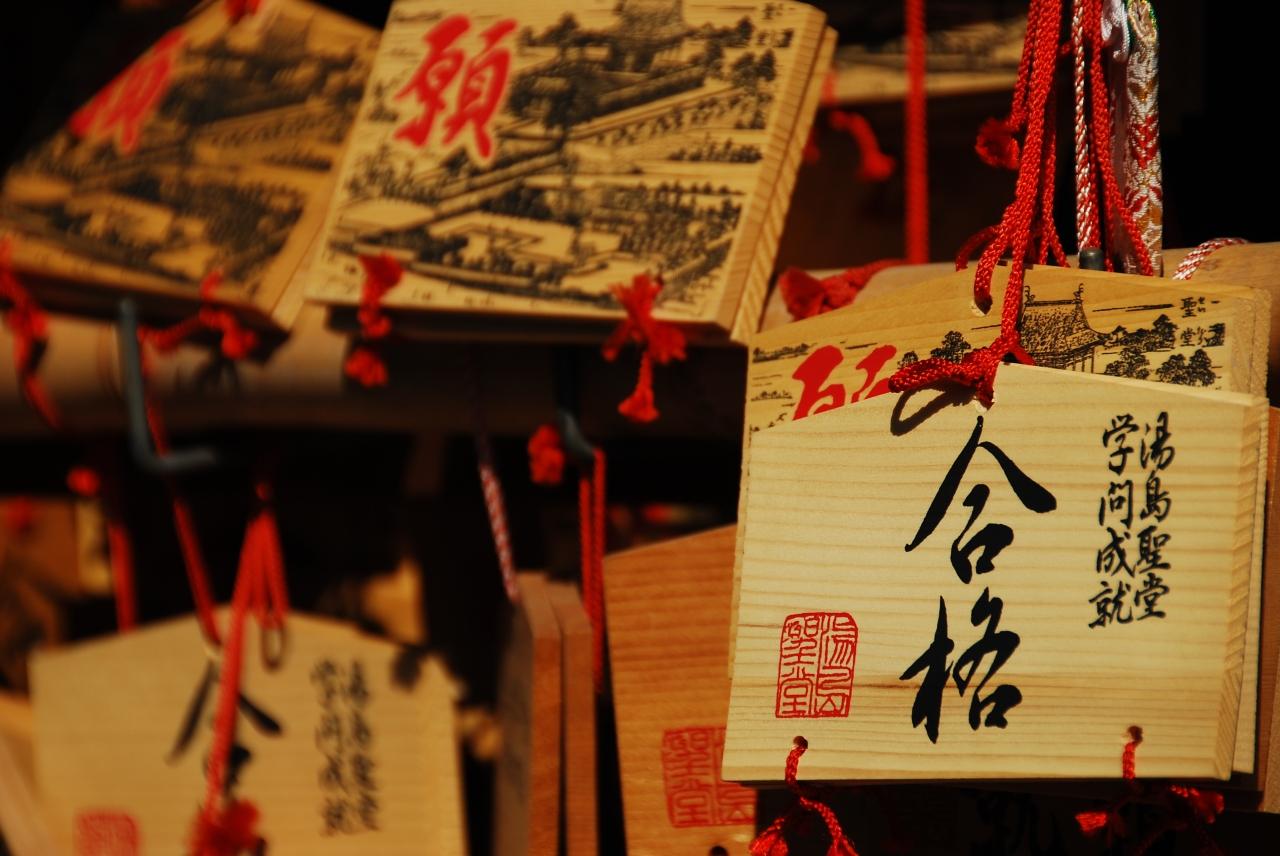 願
聖堂
湯島聖堂
学問成就
合格
湯島聖堂
願
願
湯島聖堂
学問成就
聖堂